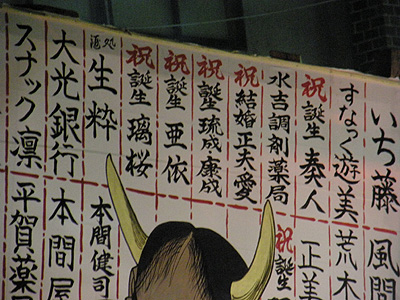 いち藤
風間
すなっく遊美
荒木
祝誕生 泰人
正美
水吉調剤薬局
祝誕生
祝結婚 正夫 愛
祝誕生 琉成 康成
祝誕生 亜依
祝誕生 璃桜
酒処 生粋
本間健司
大光銀行
本間屋
スナック凛
平賀薬局